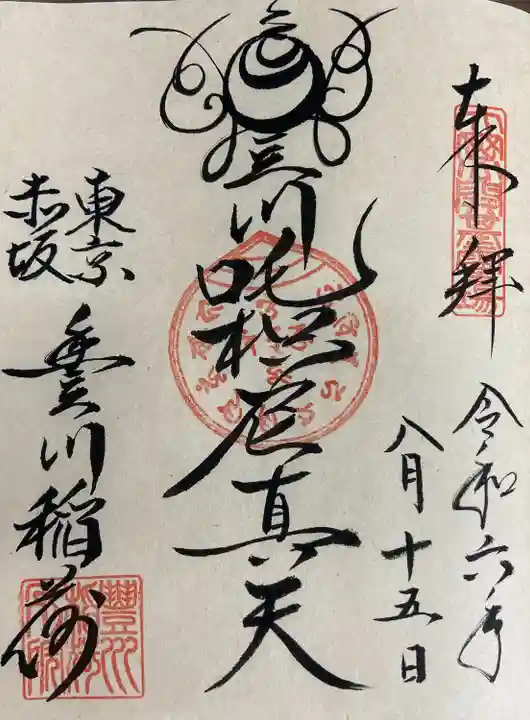 奉拝
令和六年
八月十五日
豊川吒枳尼真天
東京
赤坂
豊川稲荷